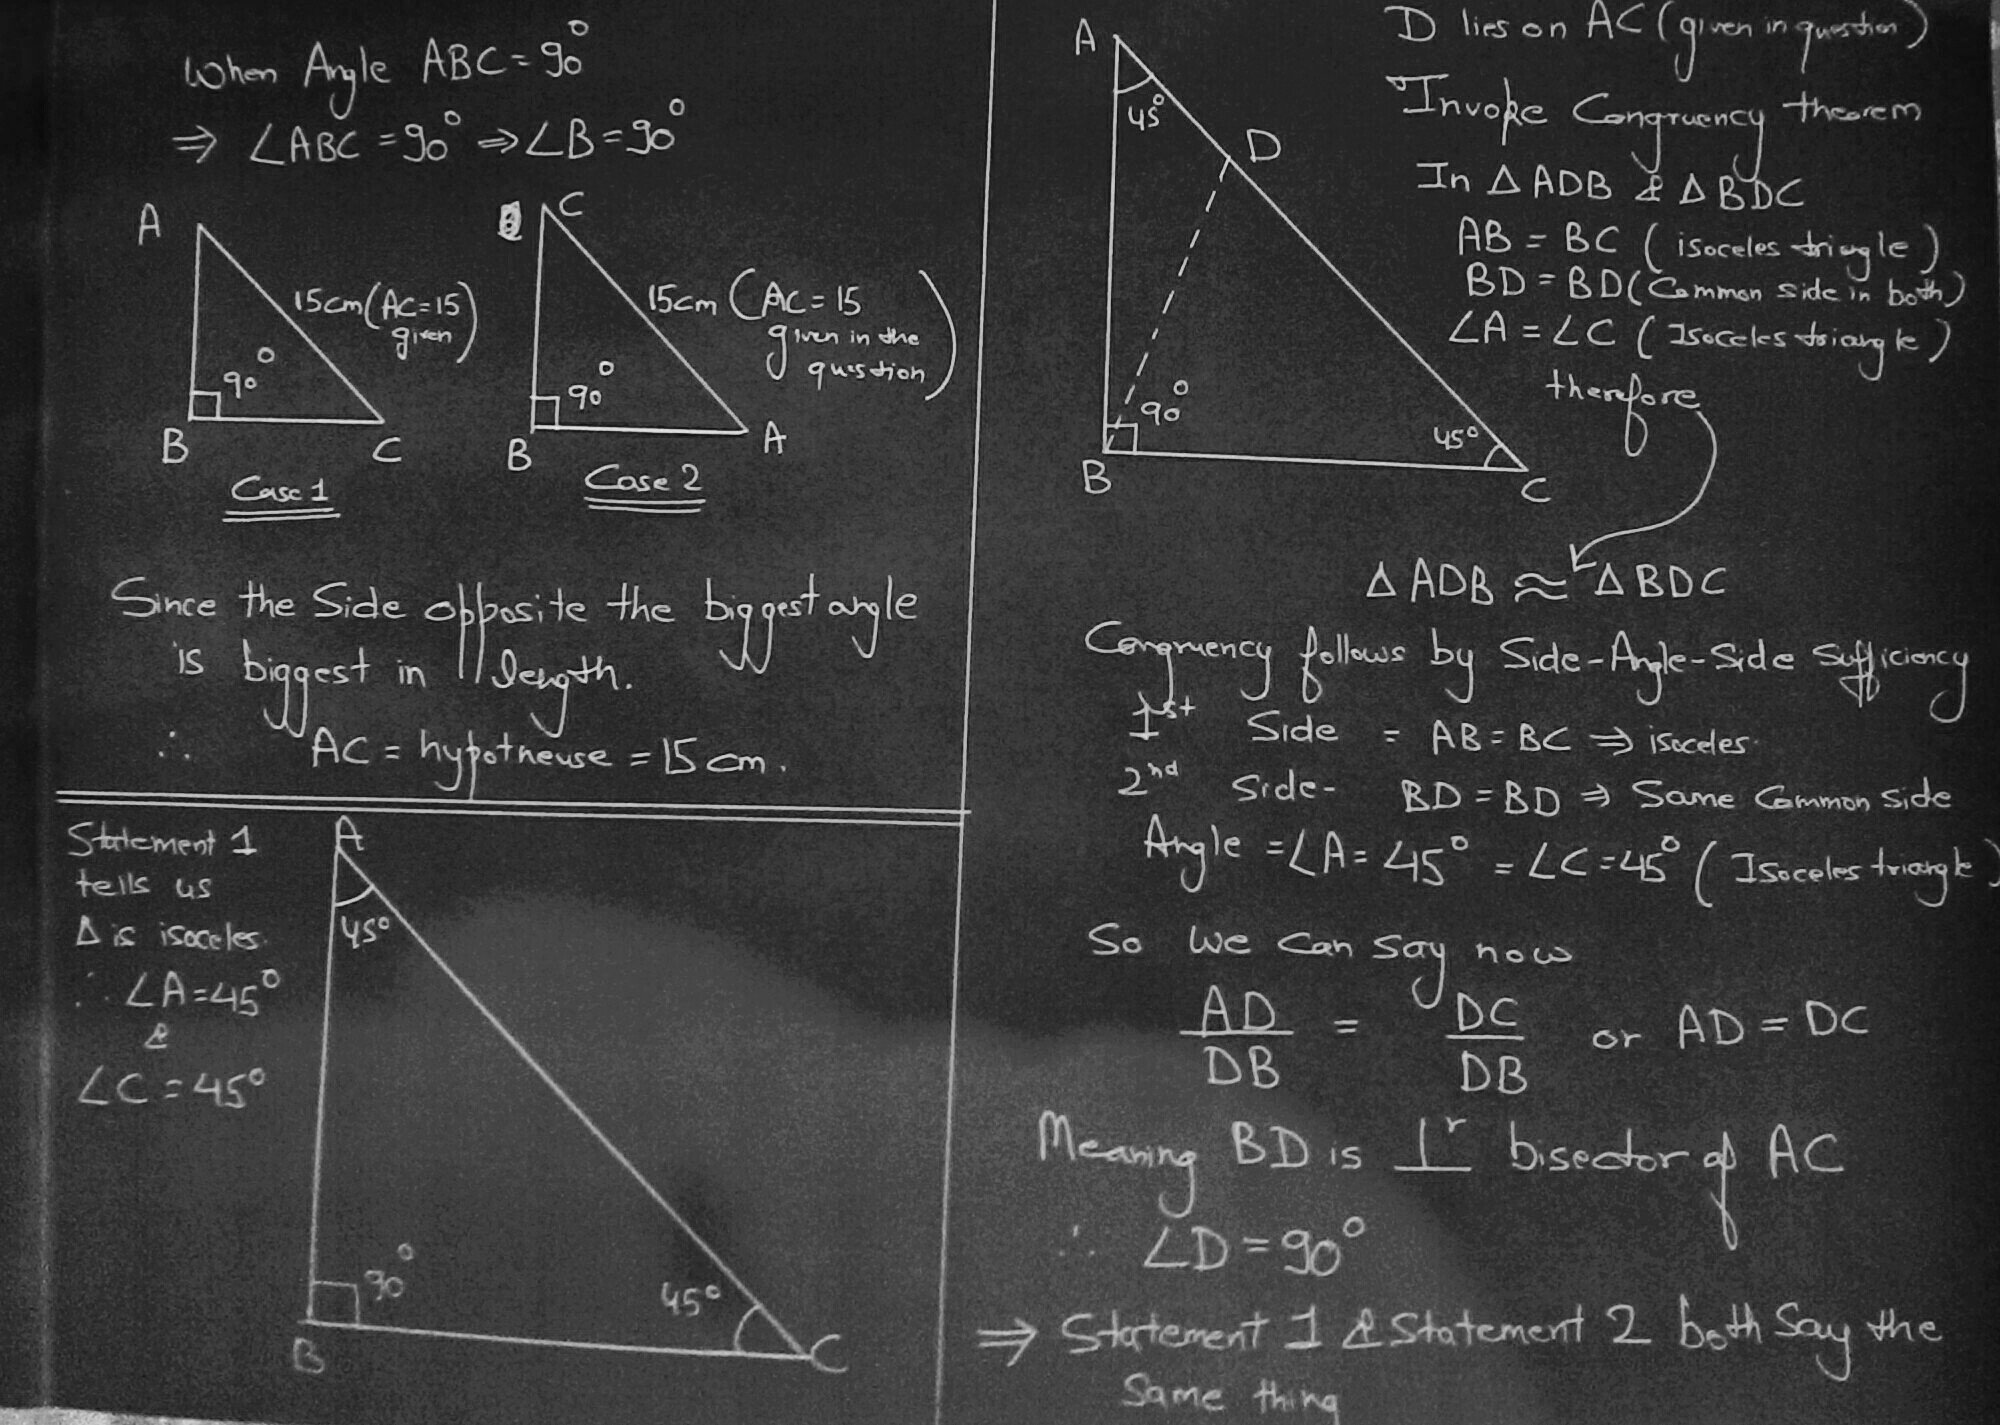 When Angle ABC = 90°
⇒ ∠ABC = 90° ⇒ ∠B = 90°
A
15cm (AC=15
given)
90°
B
C
Case 1
C
15cm (AC = 15
given in the
question)
90°
B
A
Case 2
Since the Side opposite the biggest angle
is biggest in length.
∴ AC = hypotheuse = 15 cm.
Statement 1
tells us
Δ is isoceles.
∴ ∠A=45°
&
∠C = 45°
A
45°
90°
45°
B
C
D lies on AC (given in question)
Invoke Congruency theorem
In Δ ADB & Δ BDC
AB = BC (isoceles triangle)
BD = BD (Common side in both)
∠A = ∠C (Isoceles triangle)
therefore
A
45°
D
90°
45°
B
C
Δ ADB ≈ Δ BDC
Congruency follows by Side-Angle-Side Sufficiency
1st Side = AB = BC ⇒ isoceles.
2nd Side- BD = BD ⇒ Same Common side
Angle = ∠A = 45° = ∠C = 45° (Isoceles triangle)
So we can say now
AD/DB = DC/DB or AD = DC
Meaning BD is ⊥r bisector of AC
∴ ∠D = 90°
⇒ Statement 1 & Statement 2 both Say the
Same thing